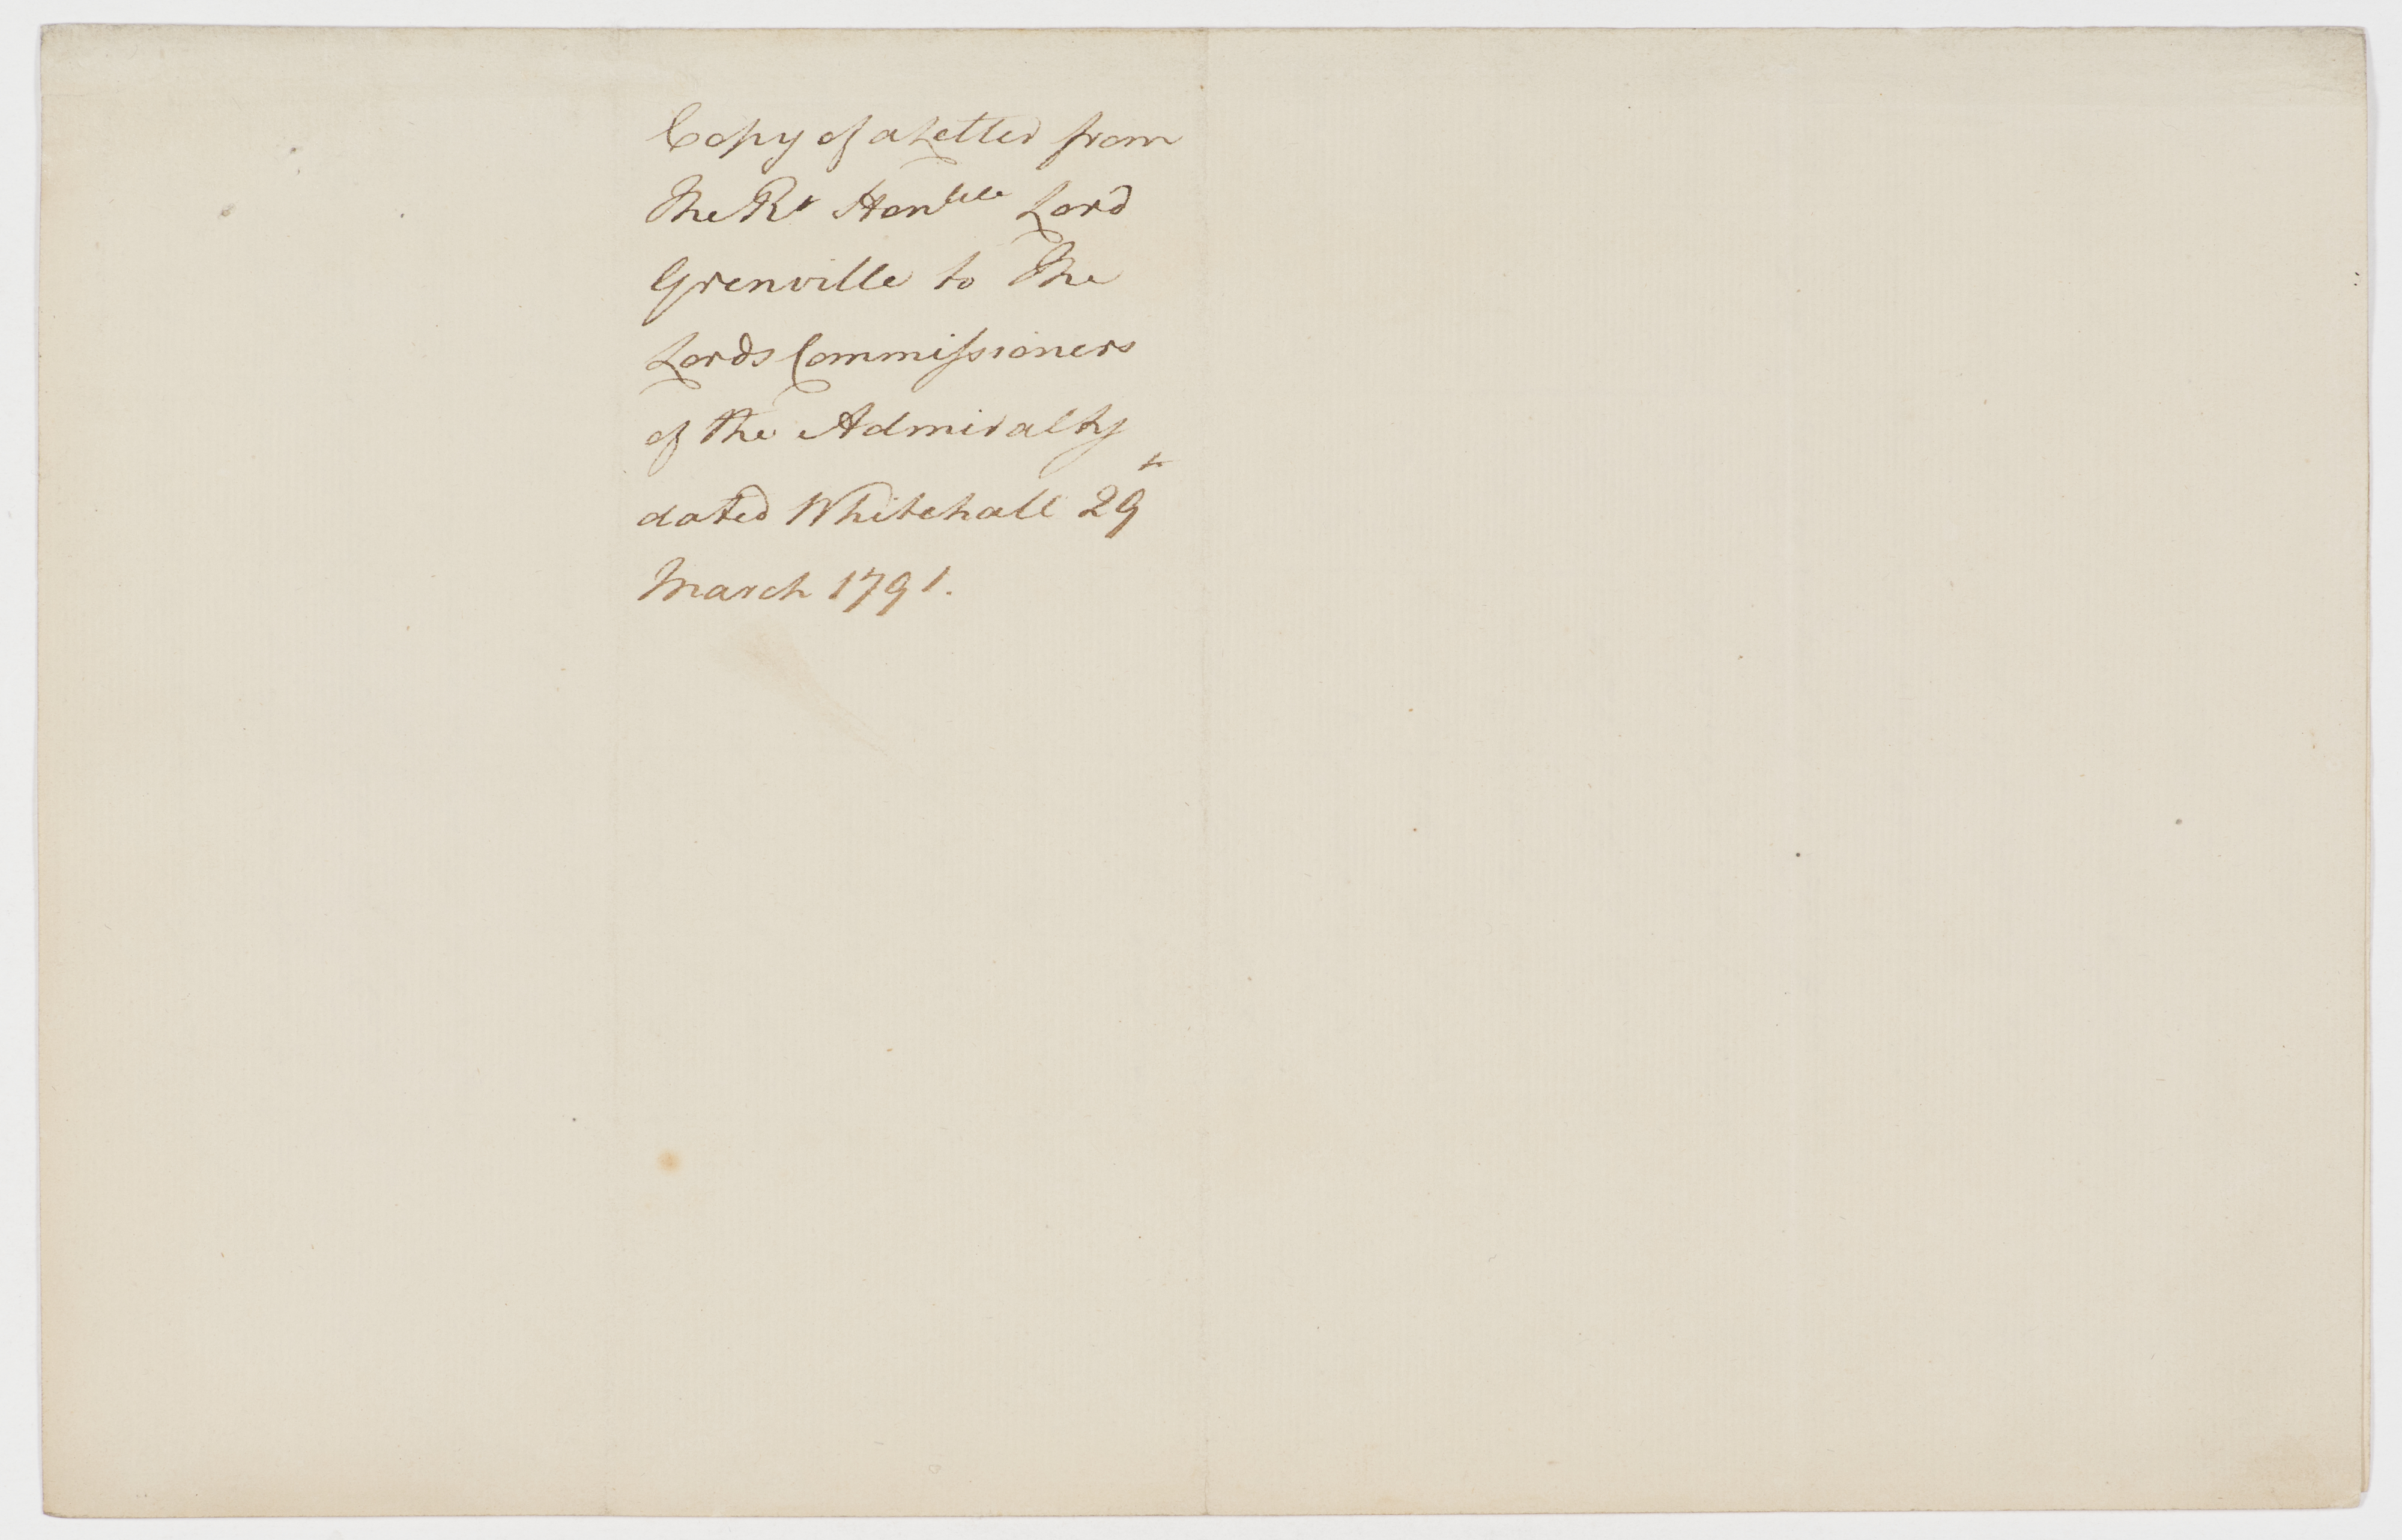 Copy of a Letter from
The Rt Honble Lord
Grenville to The
Lords Commissioners
of the Admiralty
dated Whitehall 29th
March 1791.